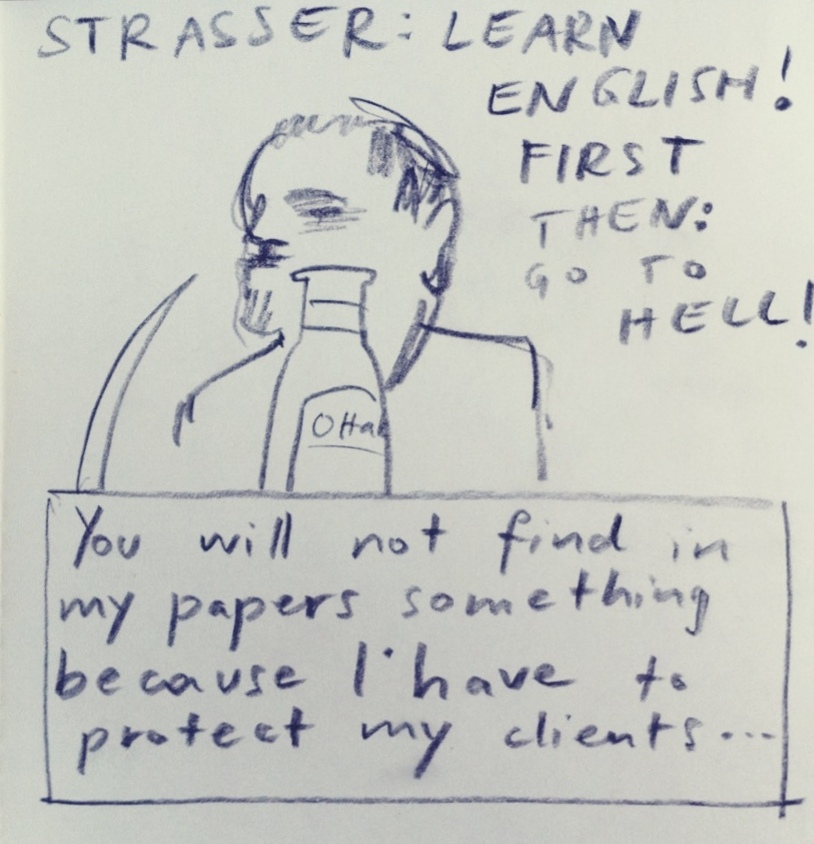 STRASSER: LEARN
ENGLISH!
FIRST
THEN:
GO TO
HELL!
OHa
You will not find in
my papers something
because I have to
protect my clients...